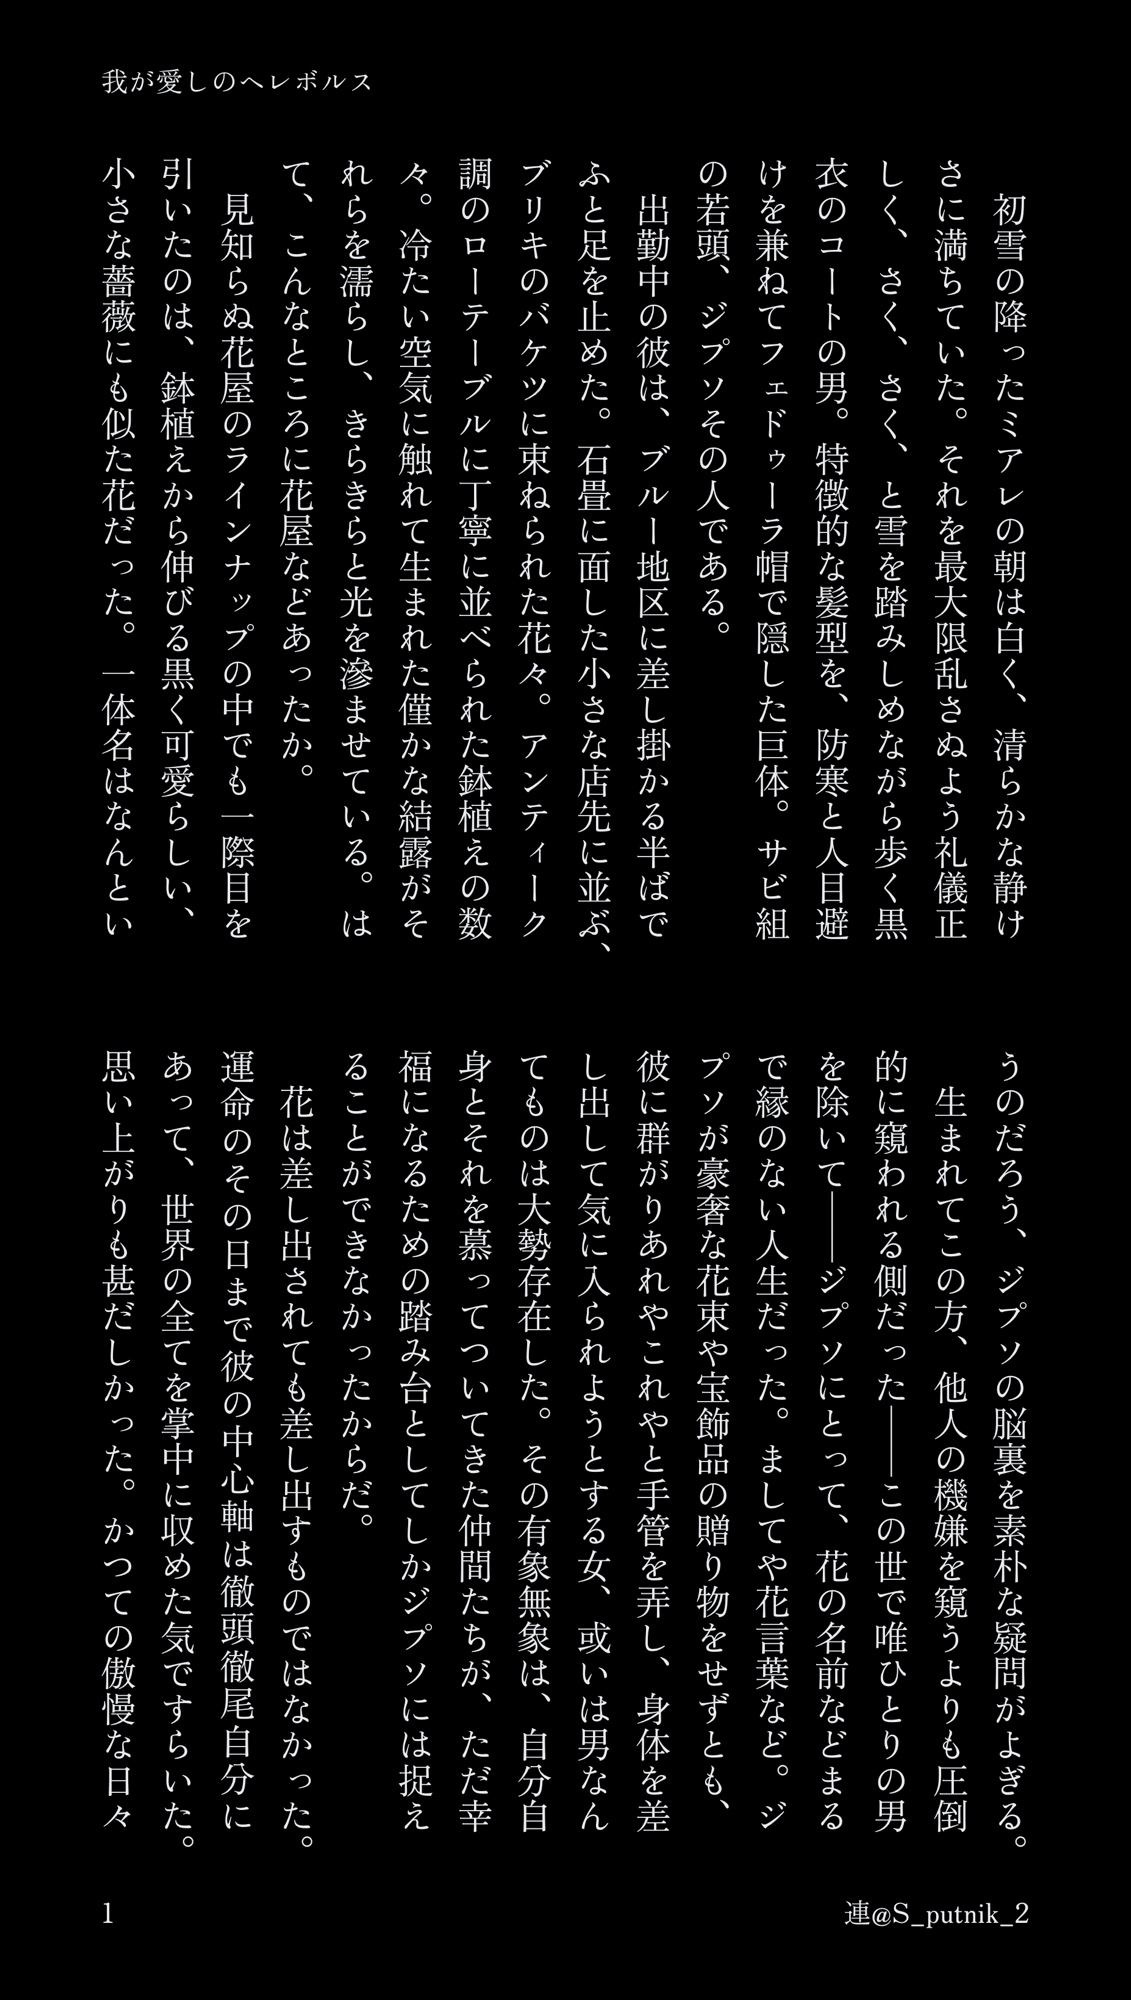 我が愛しのヘレボルス
　初雪の降ったミアレの朝は白く、清らかな静け
さに満ちていた。それを最大限乱さぬよう礼儀正
しく、さく、さく、と雪を踏みしめながら歩く黒
衣のコートの男。特徴的な髪型を、防寒と人目避
けを兼ねてフェドゥーラ帽で隠した巨体。サビ組
の若頭、ジプソその人である。
　出勤中の彼は、ブルー地区に差し掛かる半ばで
ふと足を止めた。石畳に面した小さな店先に並ぶ、
ブリキのバケツに束ねられた花々。アンティーク
調のローテーブルに丁寧に並べられた鉢植えの数
々。冷たい空気に触れて生まれた僅かな結露がそ
れらを濡らし、きらきらと光を滲ませている。は
て、こんなところに花屋などあったか。
　見知らぬ花屋のラインナップの中でも一際目を
引いたのは、鉢植えから伸びる黒く可愛らしい、
小さな薔薇にも似た花だった。一体名はなんとい
うのだろう、ジプソの脳裏を素朴な疑問がよぎる。
　生まれてこの方、他人の機嫌を窺うよりも圧倒
的に窺われる側だった――この世で唯ひとりの男
を除いて――ジプソにとって、花の名前などまる
で縁のない人生だった。ましてや花言葉など。ジ
プソが豪奢な花束や宝飾品の贈り物をせずとも、
彼に群がりあれやこれやと手管を弄し、身体を差
し出して気に入られようとする女、或いは男なん
てものは大勢存在した。その有象無象は、自分自
身とそれを慕ってついてきた仲間たちが、ただ幸
福になるための踏み台としてしかジプソには捉え
ることができなかったからだ。
　花は差し出されても差し出すものではなかった。
運命のその日まで彼の中心軸は徹頭徹尾自分に
あって、世界の全てを掌中に収めた気ですらいた。
思い上がりも甚だしかった。かつての傲慢な日々
1
連@S_putnik_2